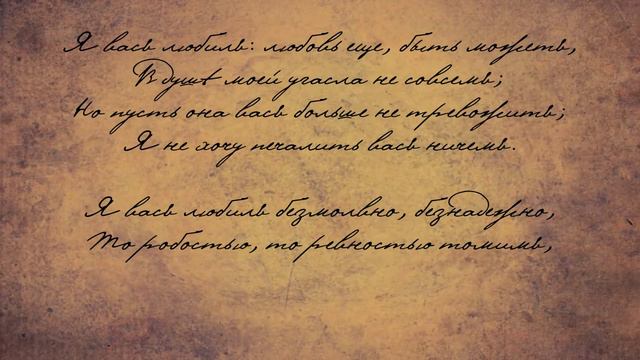 Я васъ любилъ: любовь еще, быть можетъ,
Въ душѣ моей угасла не совсемъ;
Но пусть она васъ больше не тревожитъ;
Я не хочу печалить васъ ничемъ.
Я васъ любилъ безмолвно, безнадежно,
То робостью, то ревностью томимъ,